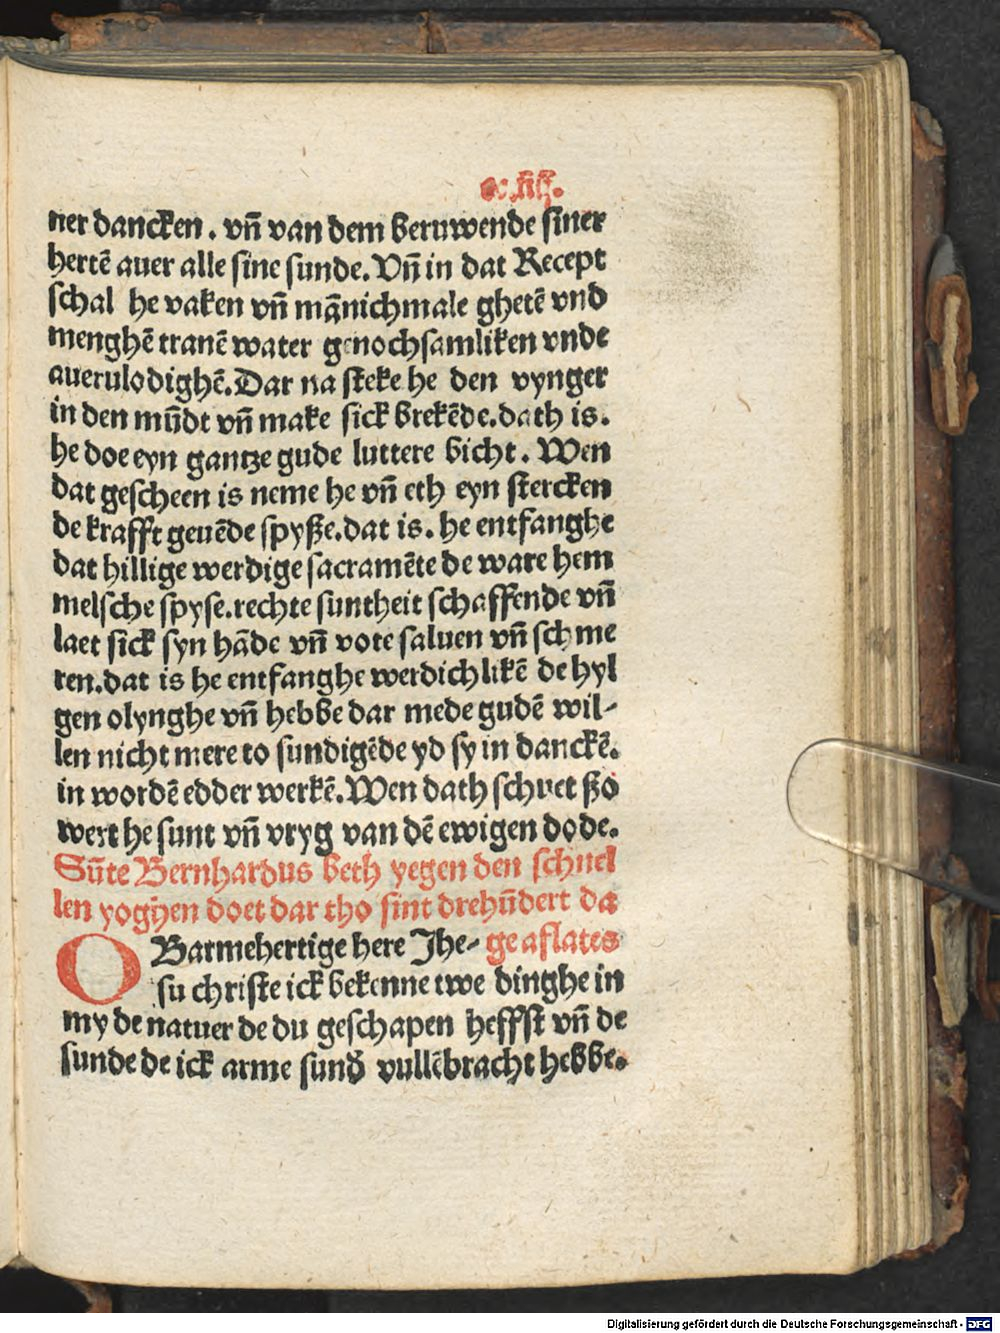 ner dancken . vñ van dem beruwende siner
hertē auer alle sine sunde. Vñ in dat Recept
schal he vaken vñ mānichmale ghetē vnd
menghē tranē water genochsamliken vnde
auerulodighē. Dar na steke he den vynger
in den mūdt vñ make sick brekēde. dath is.
he doe eyn gantze gude luttere bicht . Wen
dat gescheen is neme he vñ eth eyn stercken
de krafft geuēde spyße. dat is. he entfanghe
dat hillige werdige sacramēte de ware hem
melsche spyse. rechte suntheit schaffende vñ
laet sick syn hāde vñ vote saluen vñ schme
ren. dat is he entfanghe werdichlikē de hyl
gen olynghe vñ hebbe dar mede gudē wil-
len nicht mere to sundigēde yd sy in danckē.
in wordē edder werkē. Wen dath schuet ßo
wert he sunt vñ vryg van dē ewigen dode.
Sūte Bernhardus beth yegen den schnel
len yoghen doet dar tho sint drehūdert da
ge aflates
O Barmehertige here Jhe-
su christe ick bekenne twe dinghe in
my de natuer de du geschapen heffst vñ de
sunde de ick arme sund vullēbracht hebbe.
Digitalisierung gefördert durch die Deutsche Forschungsgemeinschaft - DFG